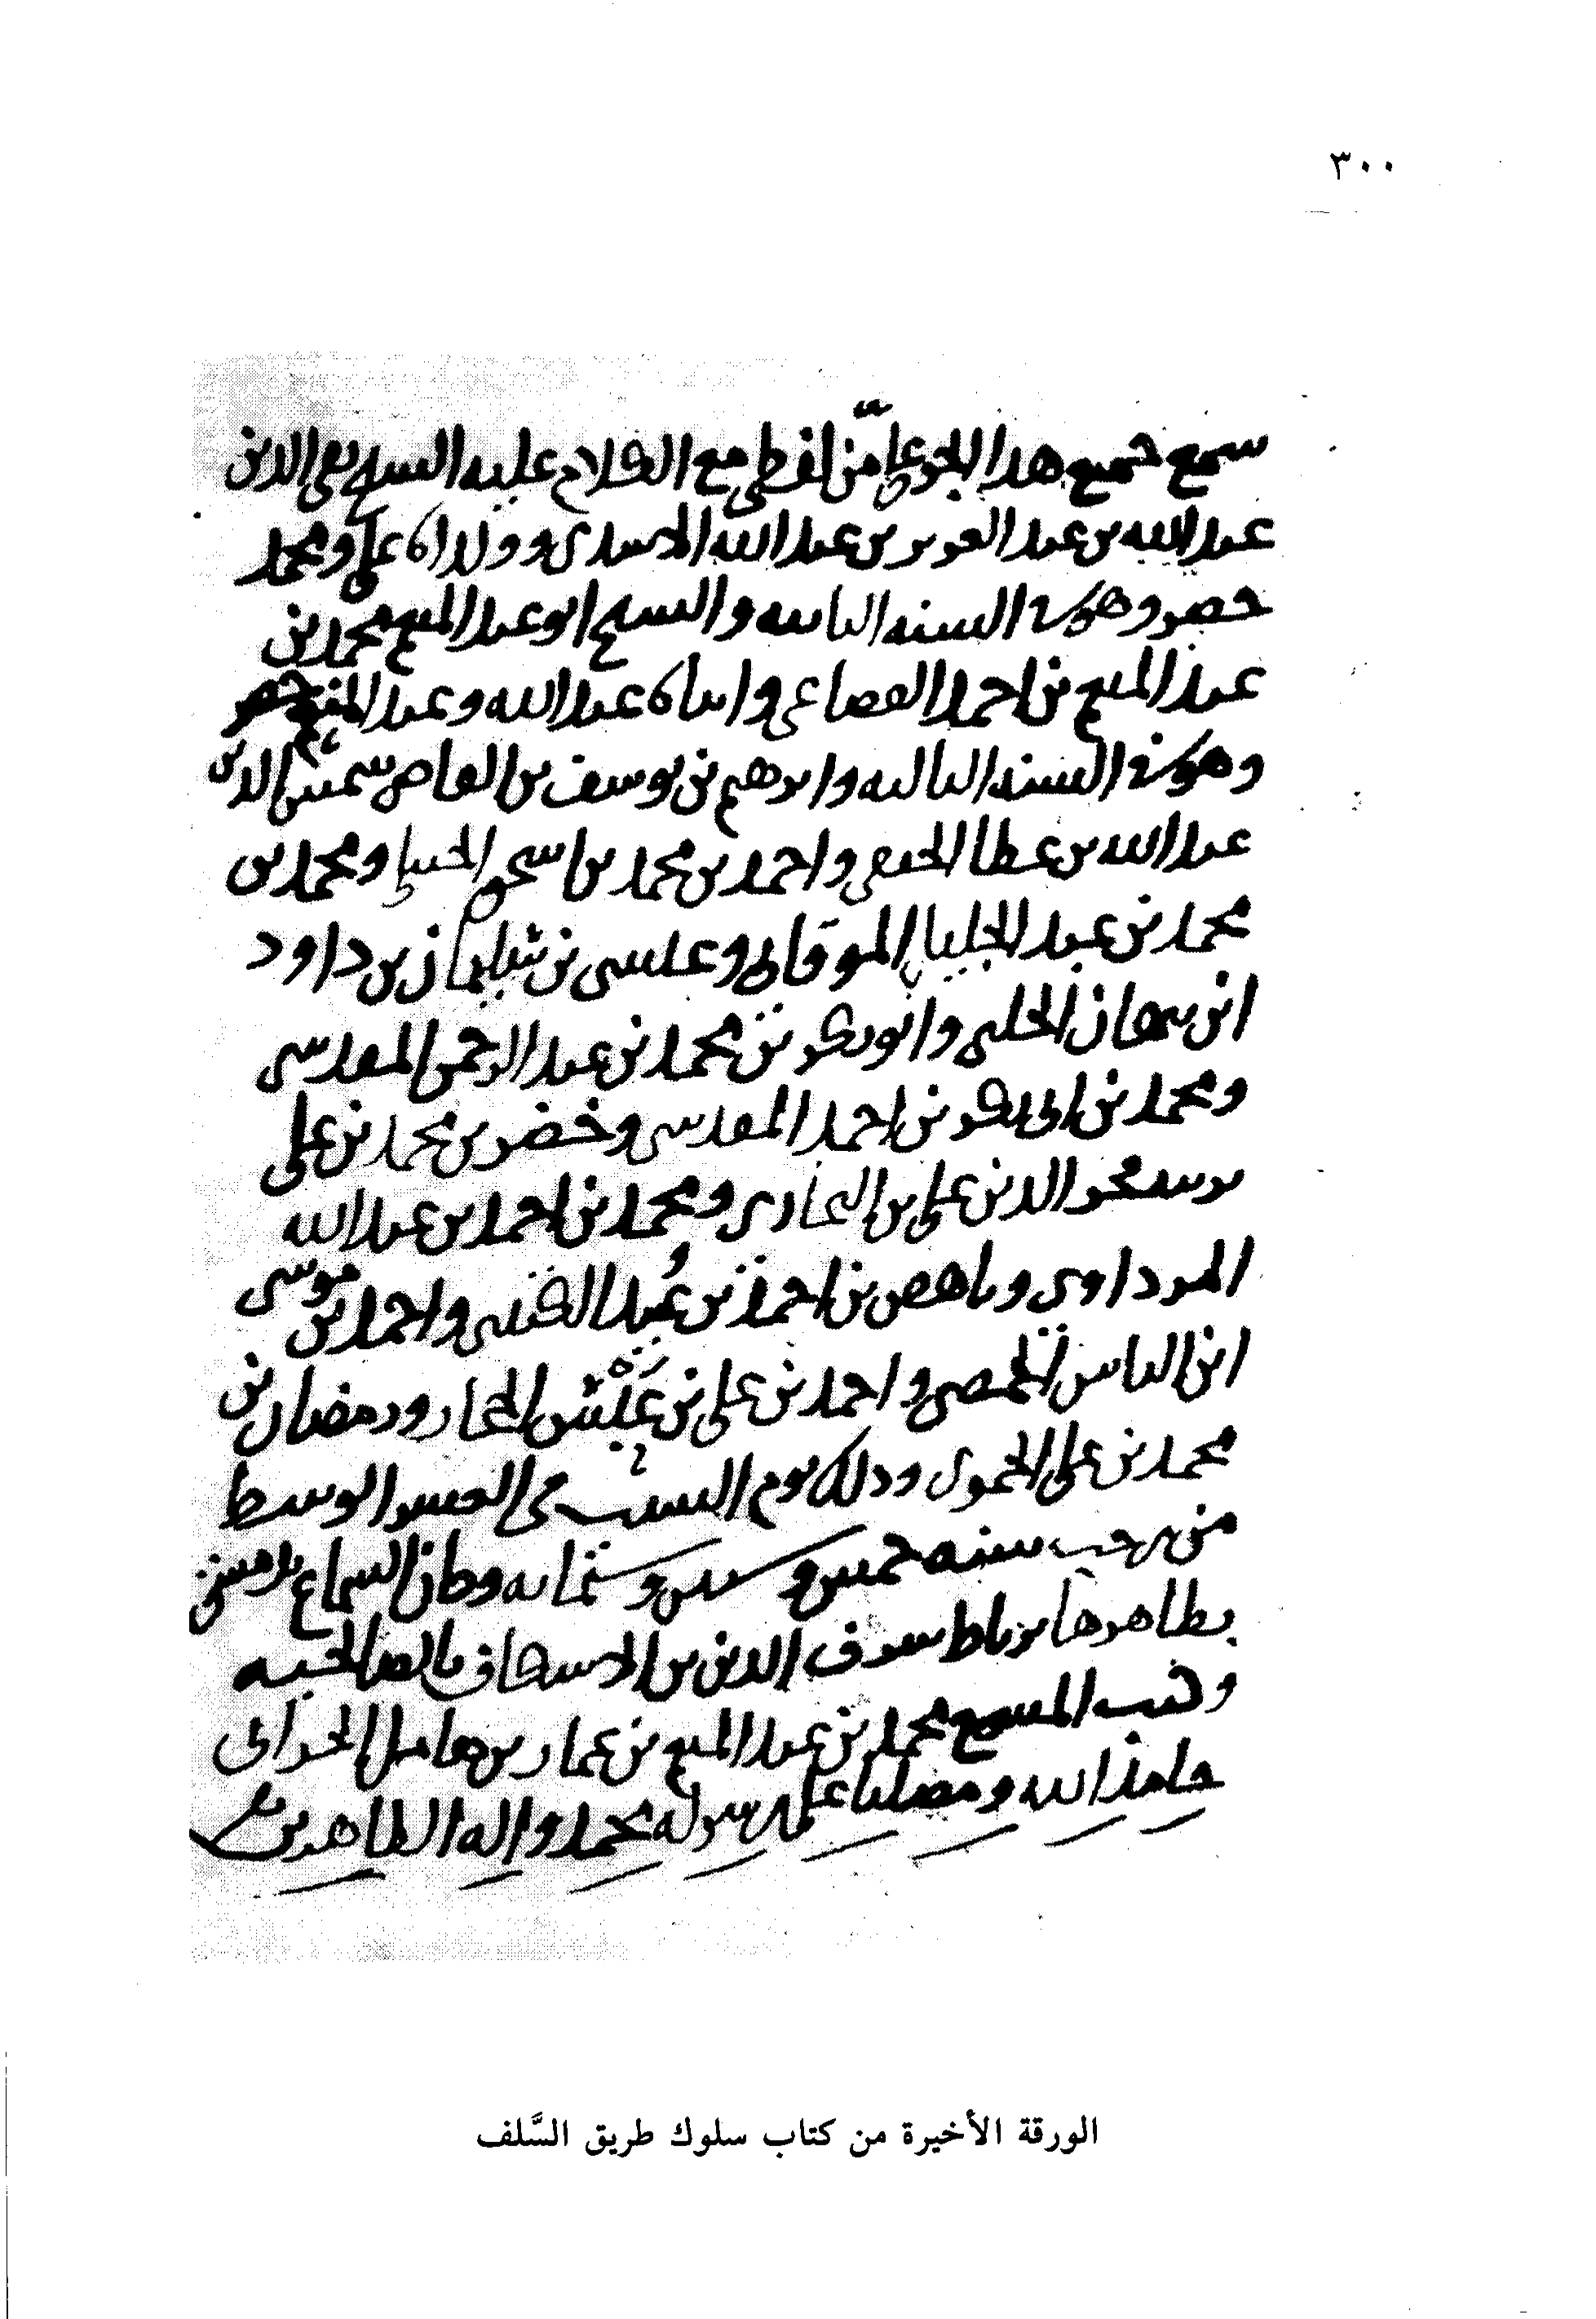 ٣٠٠
سمع جميع هذا الجزء علي من لفظي مع الكلام عليه الشيخ تقي الدين
عبد الله بن عبد العزيز بن عبد الله الاسدي وولداه علي ومحمد
حضر وهو في السنة الثانية والشيخ ابو عبد المنعم محمد بن
عبد المنعم بن احمد القضاعي وابناه عبد الله وعبد المنعم حضر
وهو في السنة الثالثة وابرهيم بن يوسف بن القاضي شمس الدين
عبد الله بن عطا الحنفي واحمد بن محمد بن اسحق الحنبلي ومحمد بن
محمد بن عبد الجليل الموقاني وعيسى بن سليمان بن داود
ابن الحلبي وابو بكر بن محمد بن عبد الرحمن المقدسي
ومحمد بن ابي بكر بن احمد المقدسي وخضر بن محمد بن علي
فخر الدين علي بن البخاري ومحمد بن احمد بن عبد الله
المرداوي بن احمد بن عبيد واحمد بن موسى
ابن الحمصي واحمد بن علي بن ورمضان بن
محمد بن علي الحموي وذلك يوم السبت في العشر الوسط
من رجب سنة خمس وستين وستمائة وكان السماع بدمشق
بظاهرها برباط شرف الدين بن الاسكاف بالصالحية
وكتب المسمع محمد بن عبد المنعم بن عمار بن هامل الحراني
حامدا لله ومصليا على رسوله محمد واله الطاهرين
الورقة الأخيرة من كتاب سلوك طريق السَّلف